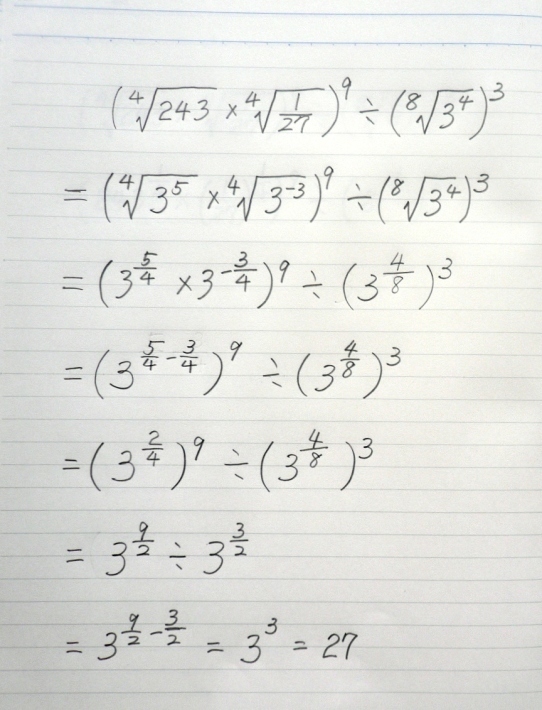 (⁴√243 × ⁴√(1/27))⁹ ÷ (⁸√3⁴)³
= (⁴√3⁵ × ⁴√3⁻³)⁹ ÷ (⁸√3⁴)³
= (3^(5/4) × 3^(-3/4))⁹ ÷ (3^(4/8))³
= (3^(5/4 - 3/4))⁹ ÷ (3^(4/8))³
= (3^(2/4))⁹ ÷ (3^(4/8))³
= 3^(9/2) ÷ 3^(3/2)
= 3^(9/2 - 3/2) = 3³ = 27